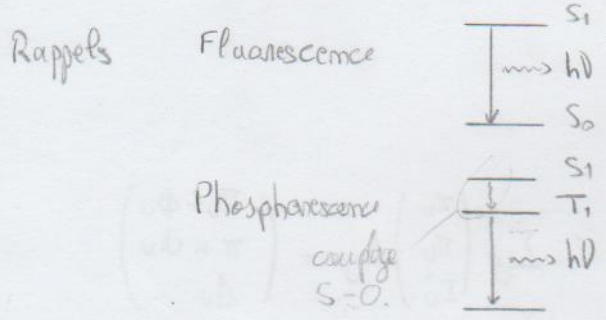 Rappels Fluorescence S₁
hν
S₀
S₁
Phosphorescence T₁
couplage hν
S-O.